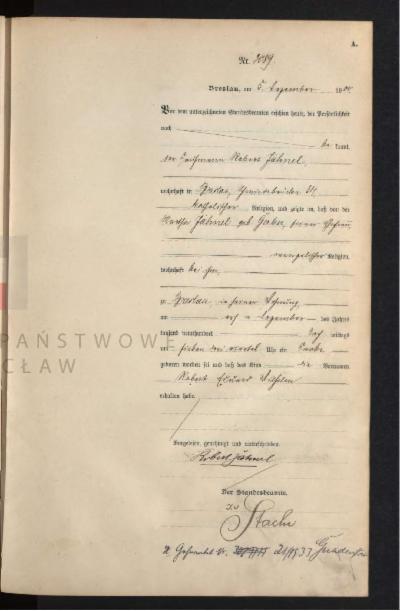 A.
Nr. 2089.
Breslau, am 5. Dezember 19
Vor dem unterzeichneten Standesbeamten erschien heute, der Persönlichkeit
nach
be kannt,
der Kaufmann Robert Jähnel,
wohnhaft in Breslau, Schmiedebrücke
katholischer Religion, und zeigte an, daß von der
Martha Jähnel geb. seiner Ehefrau,
evangelischer Religion,
wohnhaft bei ihm,
zu Breslau, in seiner Wohnung,
am Dezember des Jahres
tausend neunhundert mittags
um sieben drei viertel Uhr ein Knabe
geboren worden sei und daß das Kind die Vornamen
Robert Eduard Wilhelm
erhalten habe.
Vorgelesen, genehmigt und unterschrieben
Robert Jähnel
Der Standesbeamte.
Stache
PAŃSTWOWE
CŁAW